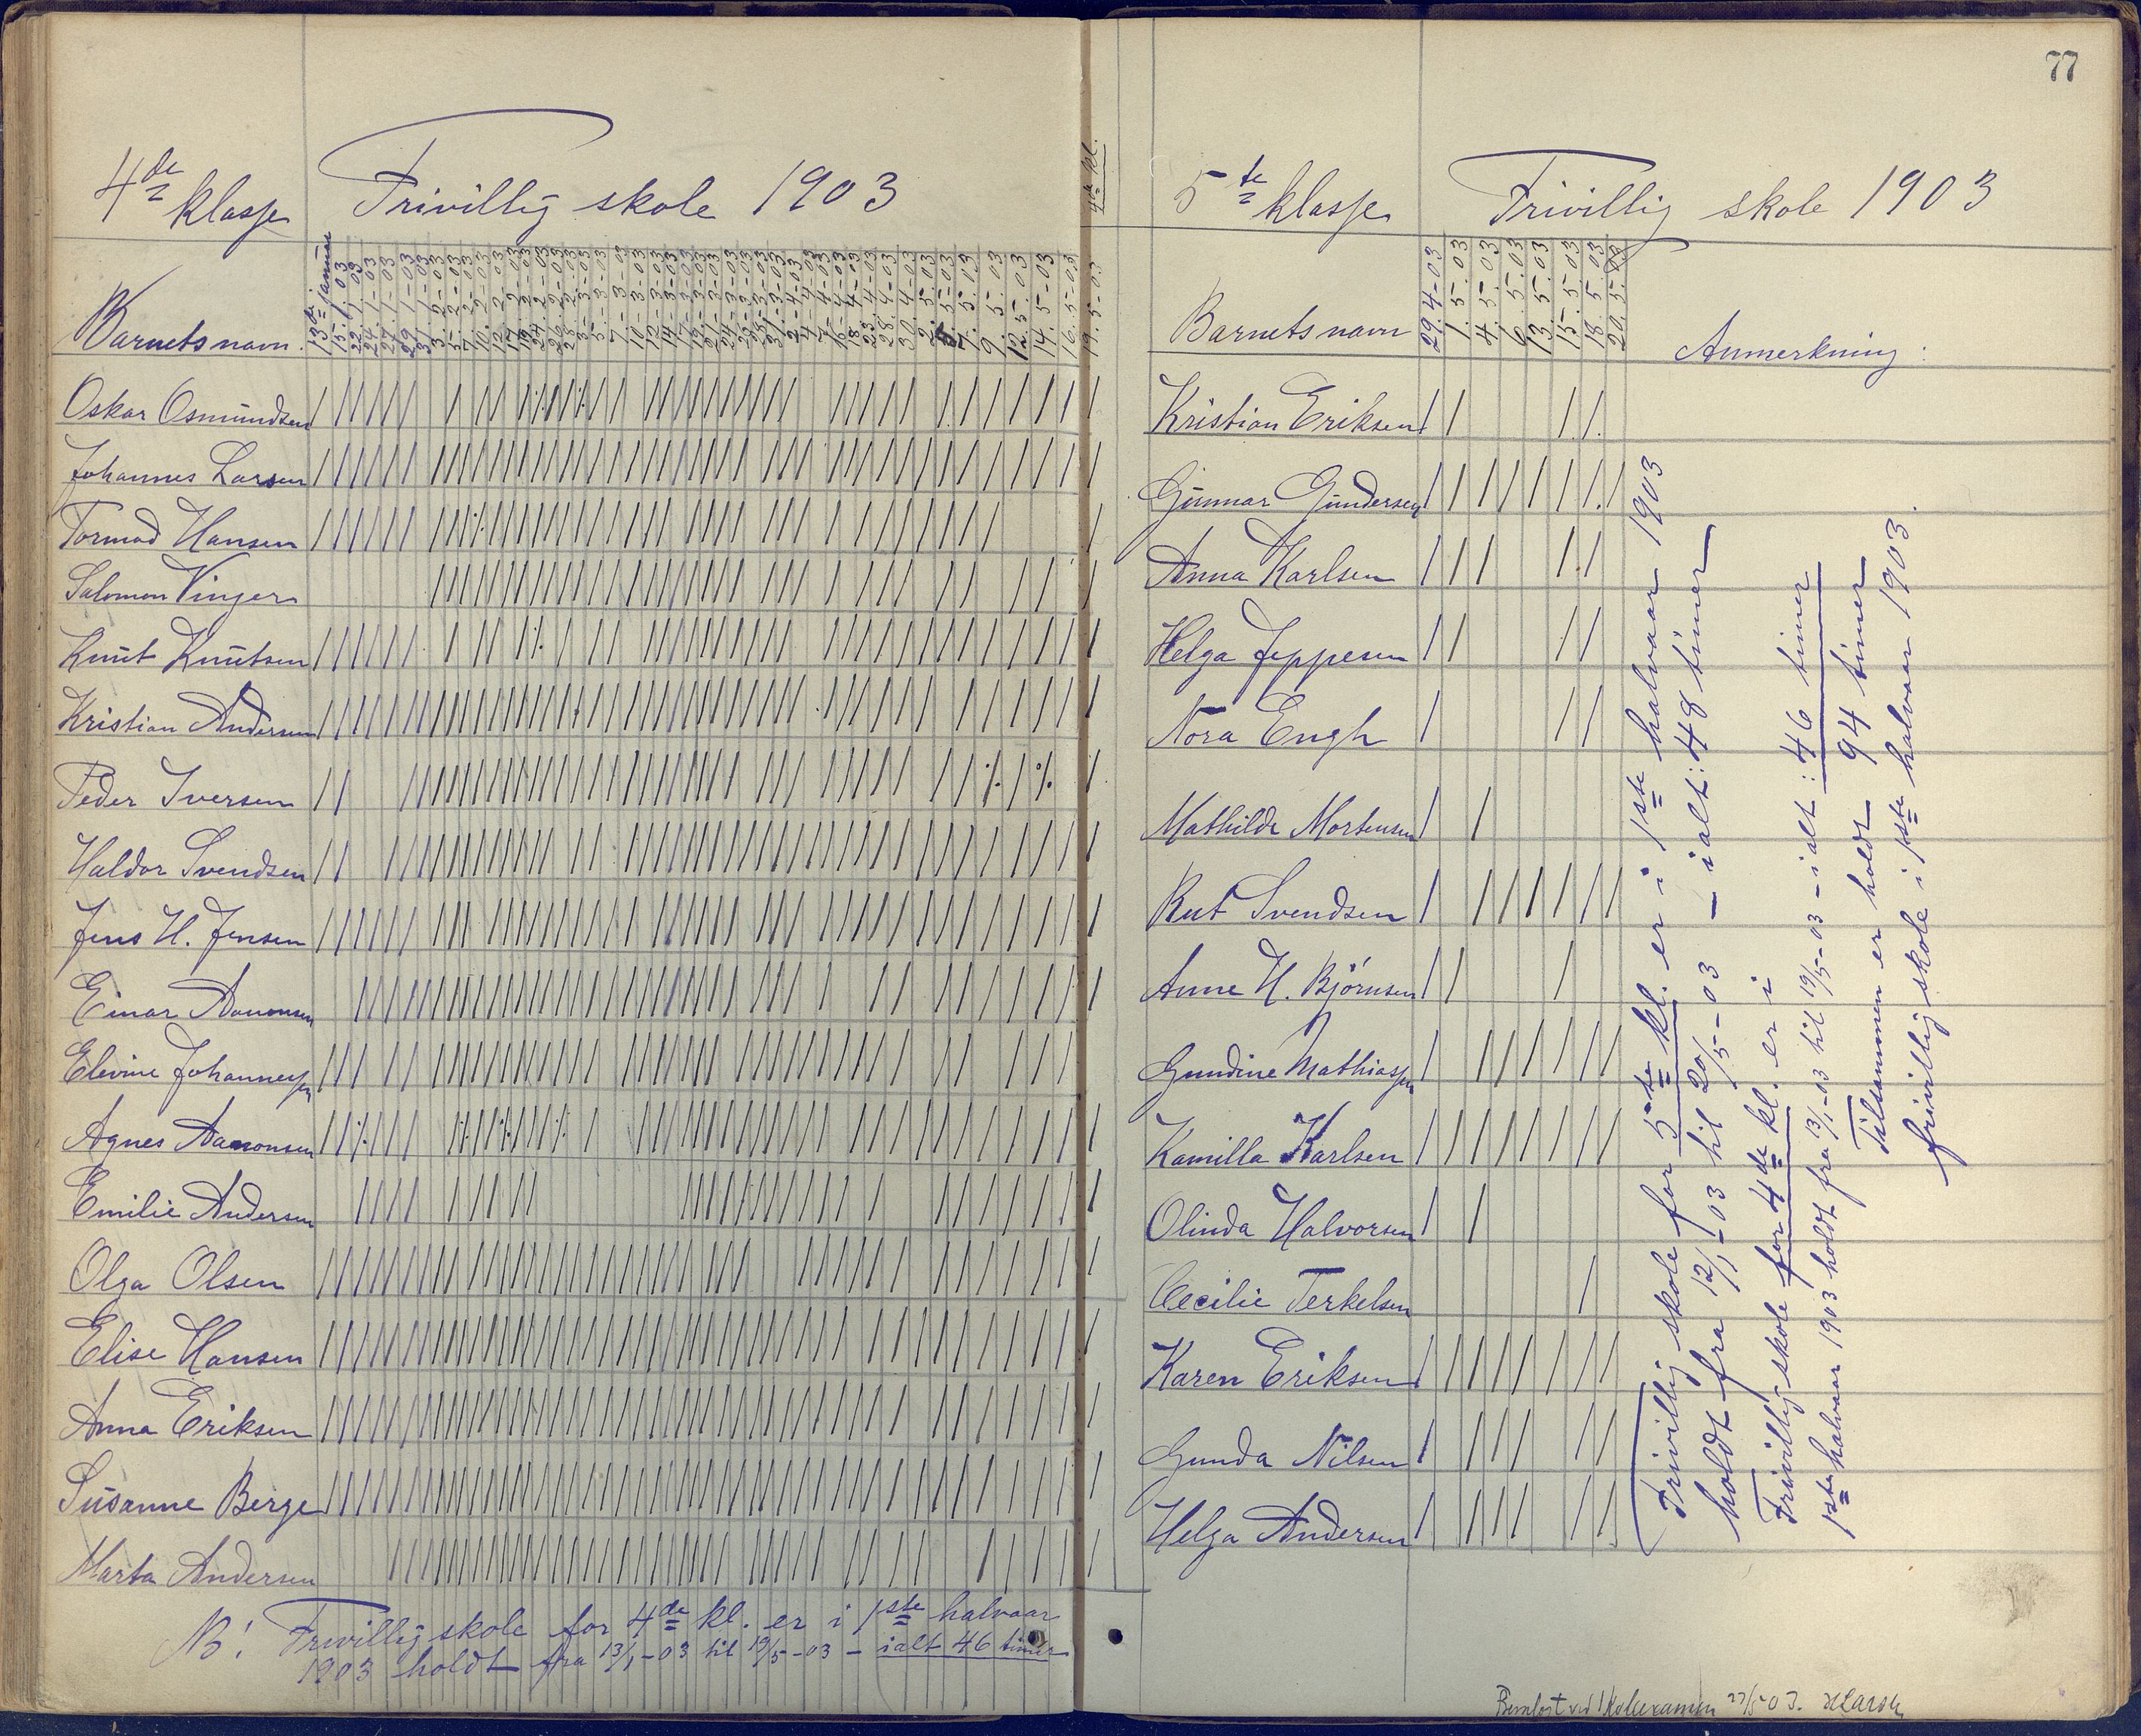 4de klasse
Frivillig skole 1903
4de kl.
Barnets navn.
13de januar
15.1.03
Oskar Osmundsen
Johannes Larsen
Tormod Hansen
Salomon Vinger
Knut Knutsen
Kristian Andersen
Peder Iversen
Haldor Svendsen
Jens H. Jensen
Einar Aanonsen
Elevine Johannessen
Agnes Aanonsen
Emilie Andersen
Olga Olsen
Elise Hansen
Anna Eriksen
Susanne Berge
Marta Andersen
NB! Frivillig skole for 4de kl. er i 1ste halvaar
1903 holdt fra 13/1-03 til 19/5-03 - ialt 46 timer
77
5te klasse
Frivillig skole 1903
Barnets navn
29.4-03
1.5.03
4.5.03
6.5.03
13.5.03
15.5.03
18.5.03
20.5.03
Anmerkning:
Kristian Eriksen
Gunnar Gundersen
Anna Karlsen
Helga Jeppesen
Nora Engh
Mathilde Mortensen
Rut Svendsen
Anne H. Björnsen
Gundine Mathiassen
Kamilla Karlsen
Olinda Halvorsen
Cecilie Terkelsen
Karen Eriksen
Gunda Nilsen
Helga Andersen
Frivillig skole for 5te kl. er i 1ste halvaar 1903
holdt fra 12/1-03 til 20/5-03 - ialt: 48 timer
Frivillig skole for 4de kl. er i
1ste halvaar 1903 holdt fra 13/1-03 til 19/5-03 - ialt: 46 timer
Tilsammen er holdt 94 timer
frivillig skole i 1ste halvaar 1903.